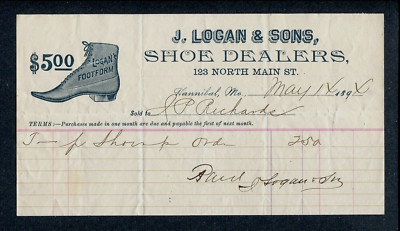 J. LOGAN & SONS,
SHOE DEALERS,
123 NORTH MAIN ST.
$5.00
LOGAN'S
FOOTFORM
Hannibal, Mo., May 14 189
Sold to J P Richards
TERMS:—Purchases made in one month are due and payable the first of next month.
To Order 250
Paid J Logan & Son